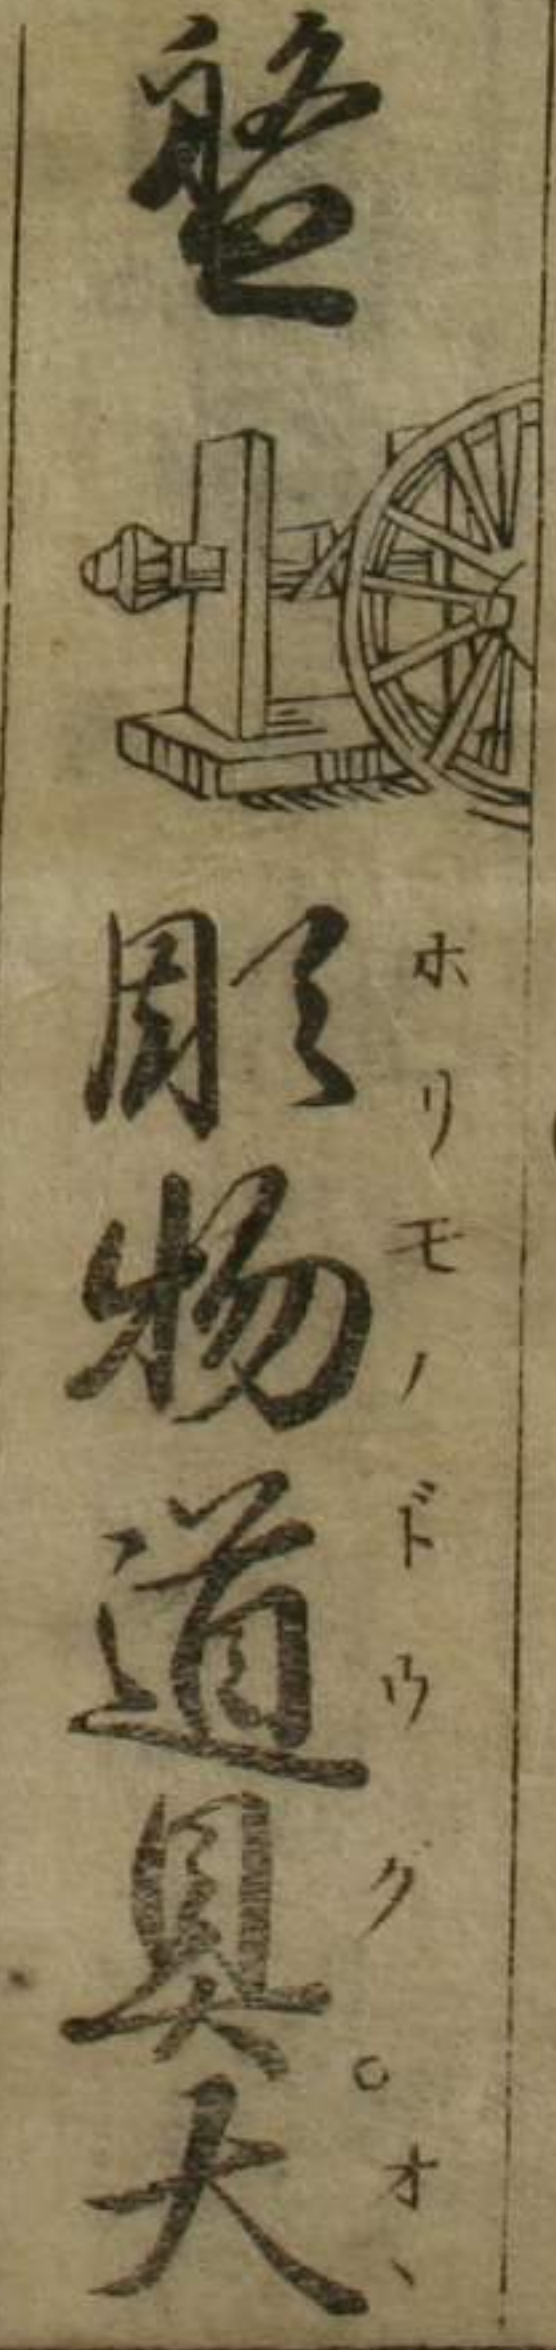 盤
彫物道具大
ホリモノドウグ。オヽ